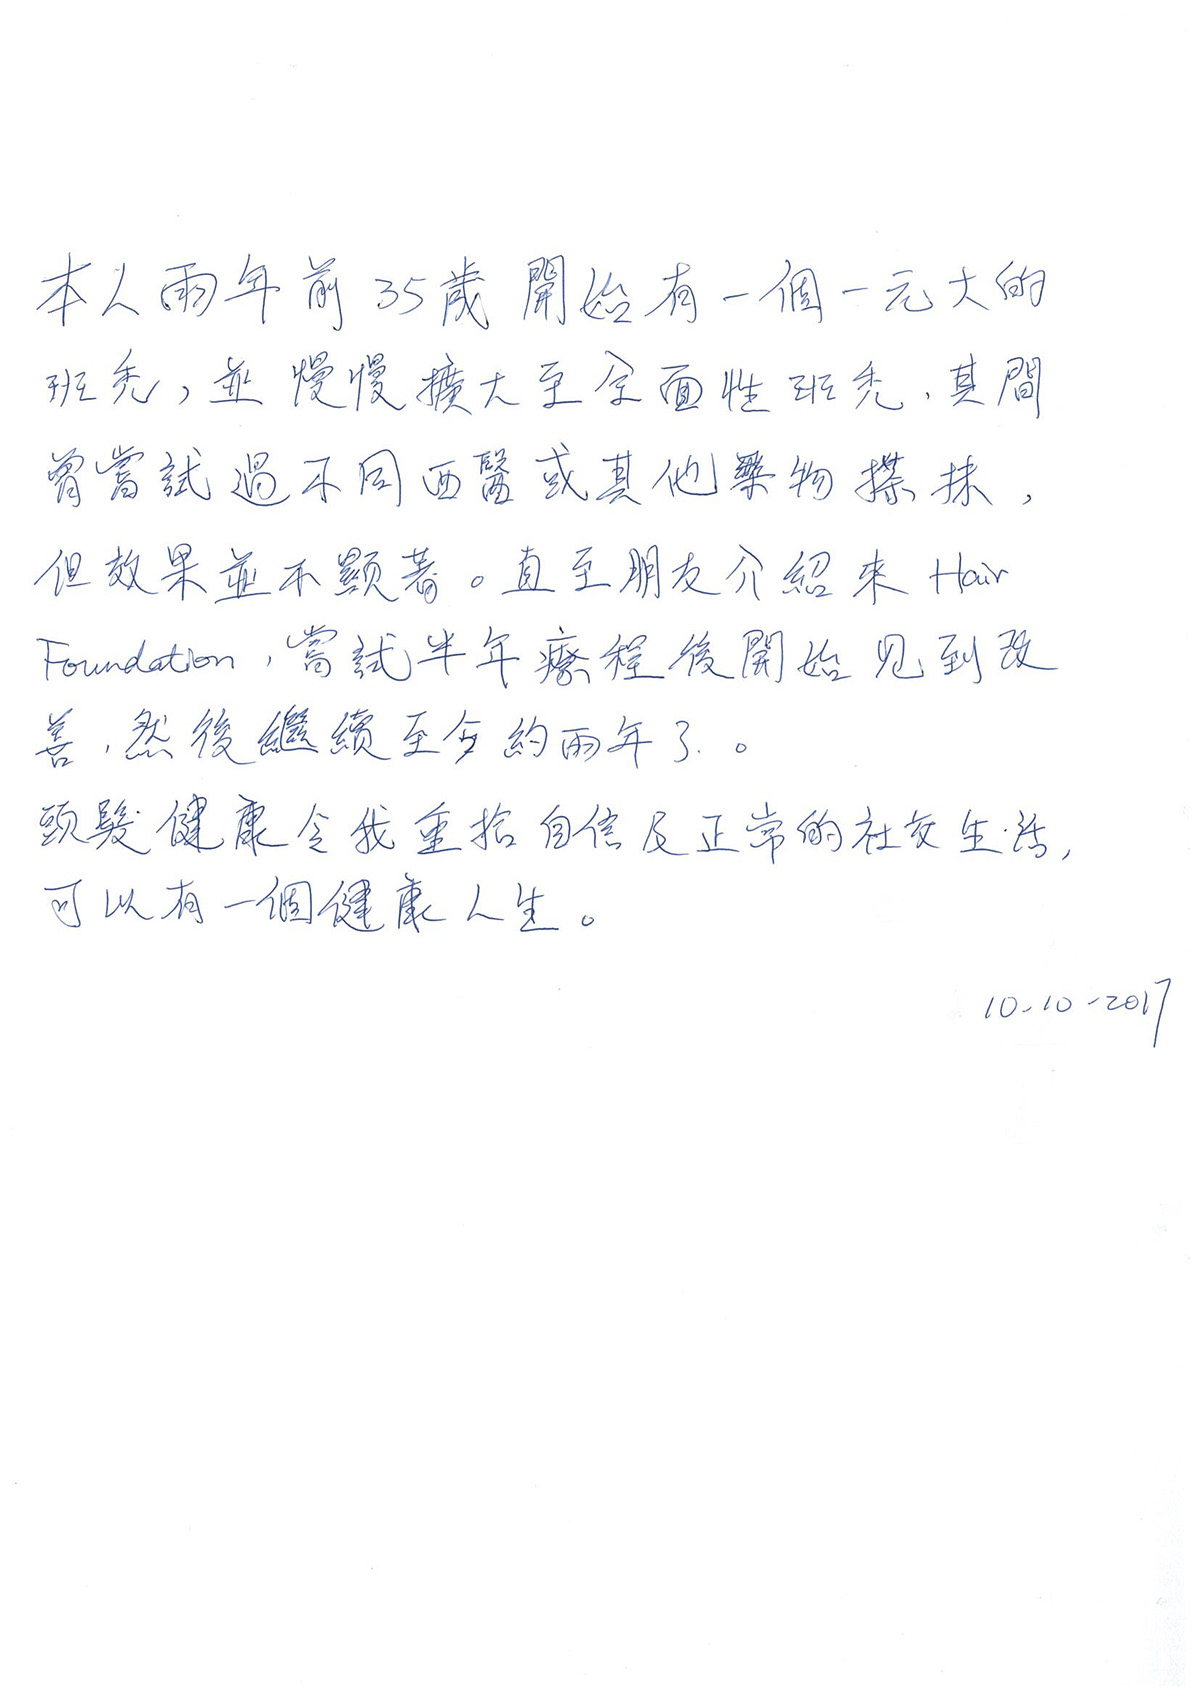 本人兩年前35歲開始有一個一元大的
班禿，並慢慢擴大至全面性班禿，其間
曾嘗試過不同西醫或其他藥物搽抹，
但效果並不顯著。直至朋友介紹來Hair
Foundation，嘗試半年療程後開始見到改
善，然後繼續至今約兩年了。
頭髮健康令我重拾自信及正常的社交生活，
可以有一個健康人生。
10-10-2017